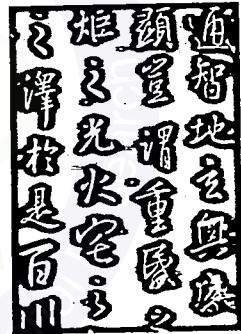 通智地玄奧感
顯豈謂重昏之
炬之光火宅之
之澤於是百川